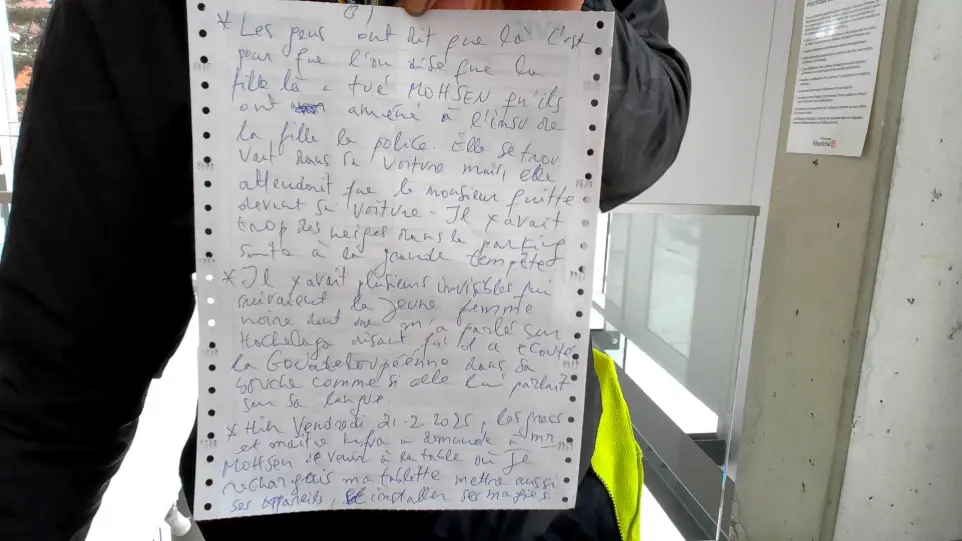 B)
* Les gens ont dit que là C'est
pour que l'on dise que la
fille là a tué MOHSEN qu'ils
ont amené à l'insu de
la fille la police. Elle se trou
vait dans sa voiture mais, elle
attendait que le monsieur quitte
devant sa voiture. Il y avait
trop des neiges dans le parking
suite à la grande tempête
* Il y avait plusieurs invisibles qui
suivaient la jeune femme
noire dont une m'a parlé sur
Hochelaga disant qu'il a écouté
la Gouadeloupéenne dans sa
bouche comme si elle lui parlait
sur sa langue.
* Hier Vendredi 21-2-2025, les gros
et maître a demandé à mr
MOHSEN de venir à la table où je
rechargeais ma tablette mettre aussi
ses appareils, installer ses magies.
Montréal